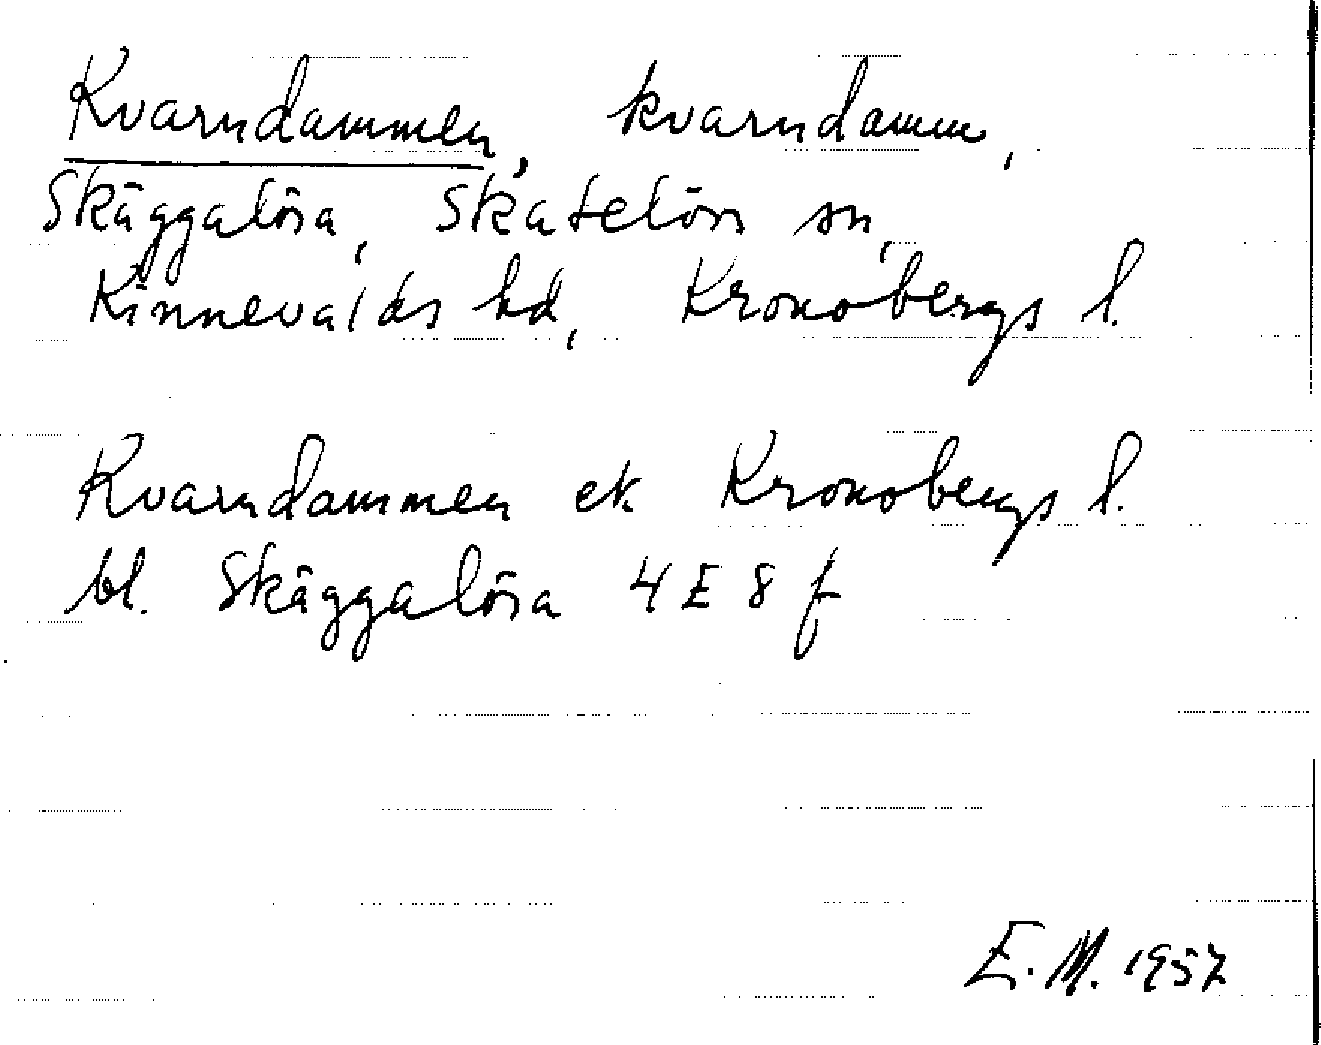 Kvarndammen, kvarndamm,
Skäggalösa, Skatelövs sn,
Kinnevalds hd, Kronobergs l.
Kvarndammen ek Kronobergs l.
bl. Skäggalösa 4 E 8 f
E. M. 1957